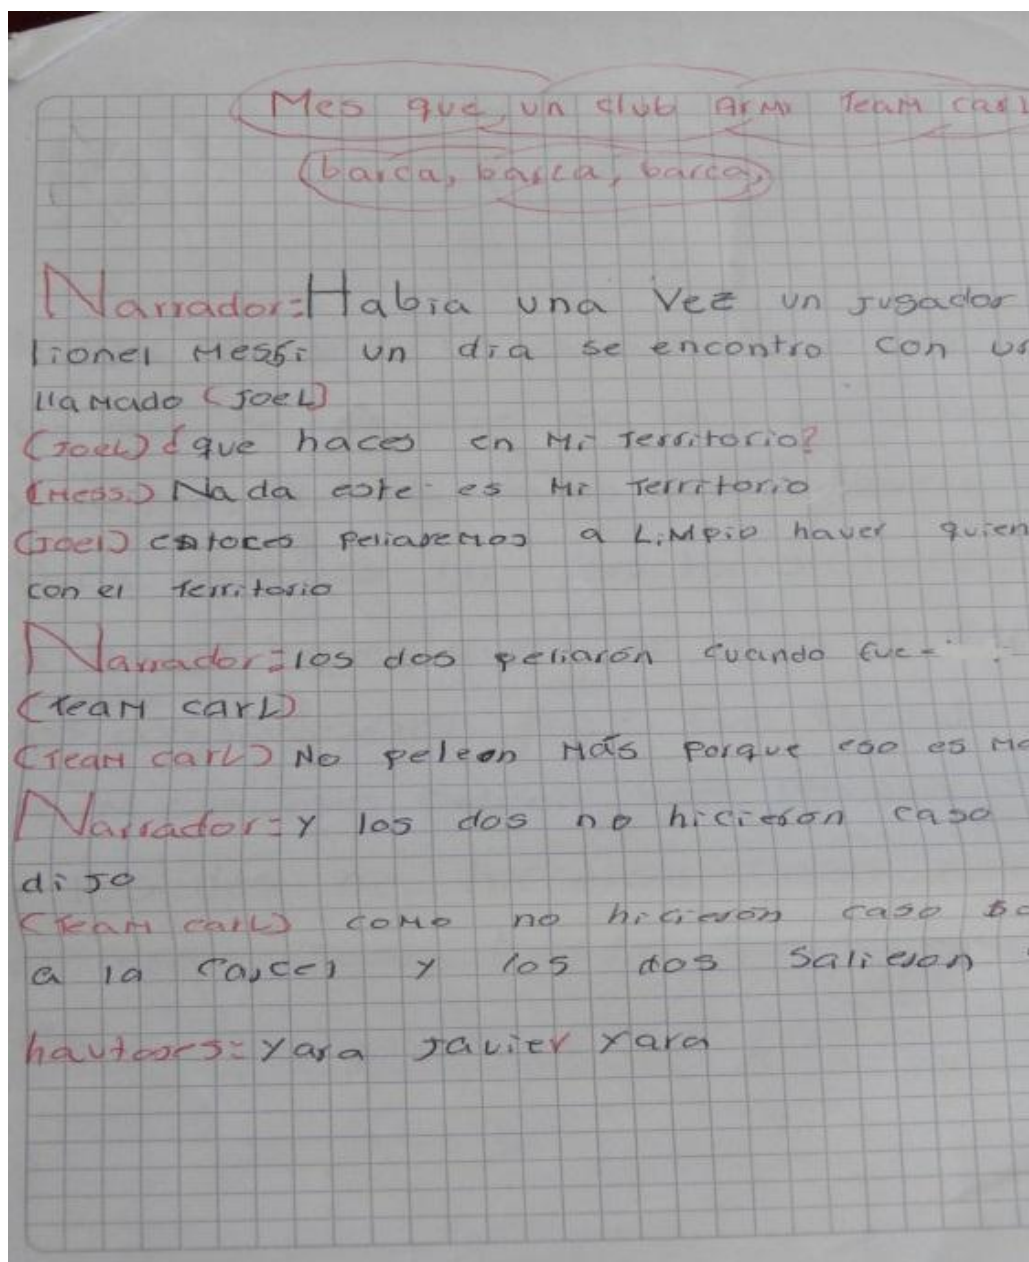 Mes que un club arma Team carl
(barca, barca, barca,)
Narrador=Habia una Vez un jugador
lionel Messi un dia se encontro con
llamado (JoeL)
(JoeL) ¿que haces en Mi Territorio?
(Messi) Nada este es Mi Territorio
(Joel) entoces peliaremos a Limpio haver quien
con el territorio
Narrador=los dos peliarón cuando fue
(TeaM carL)
(TeaM carL) No peleen Más porque eso es
Narrador=y los dos no hicierón caso
dijo
(TeaM carL) como no hicierón caso
a la carcel y los dos Salieron
hautoors=Yara Javier Yara